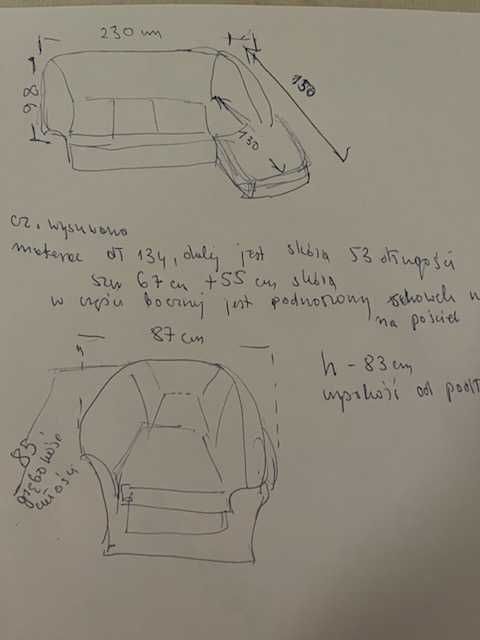 230 cm
98
150
130
cz. wysuwana
materac dł 134, dalej jest skóra 53 długości
szer 67 cm + 55 cm skóra
w części bocznej jest podnoszony schowek
na pościel
87 cm
h - 83 cm
wysokość od
85
głębokość